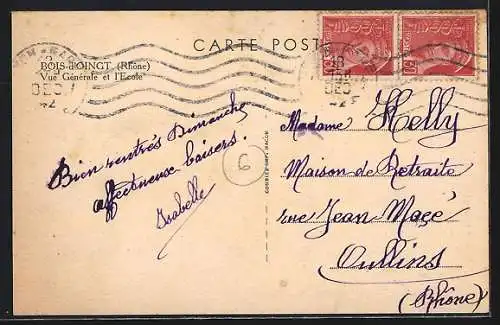 CARTE POST
BOIS-d'OINGT (Rhône)
Vue Générale et l'Ecole
DEC
42
DEC
42
Bien rentrés Dimanche
affectueux baisers.
Isabelle
6
Madame Kelly
Maison de Retraite
rue Jean Macé
Oullins
(Rhône)